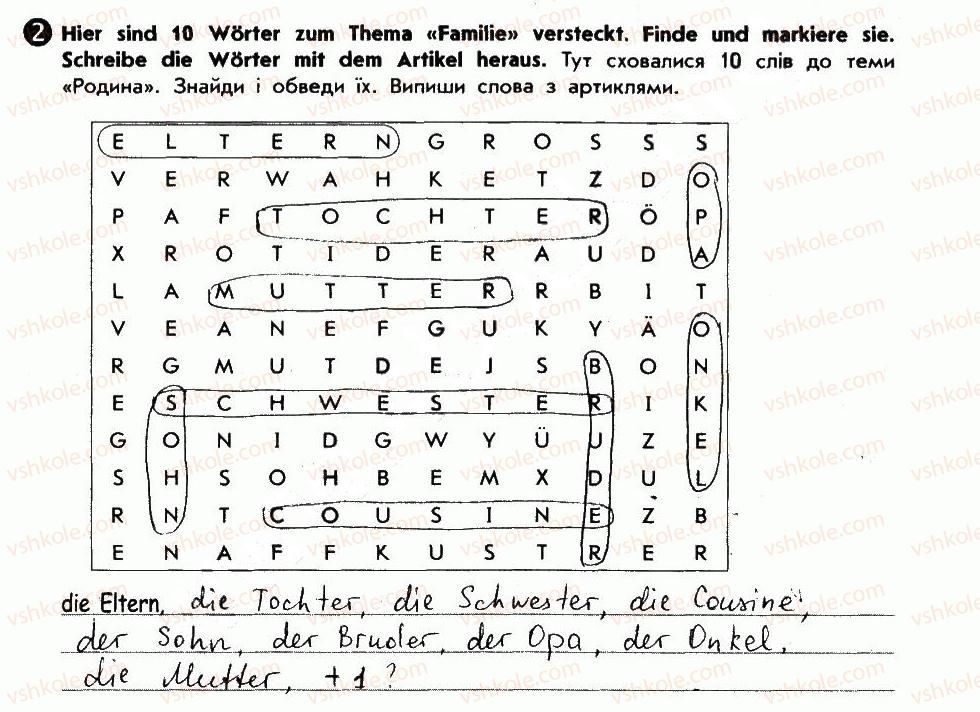 2 Hier sind 10 Wörter zum Thema «Familie» versteckt. Finde und markiere sie.
Schreibe die Wörter mit dem Artikel heraus. Тут сховалися 10 слів до теми
«Родина». Знайди і обведи їх. Випиши слова з артиклями.
E L T E R N G R O S S S
V E R W A H K E T Z D O
P A F T O C H T E R Ö P
X R O T I D E R A U D A
L A M U T T E R R B I T
V E A N E F G U K Y Ä O
R G M U T D E J S B O N
E S C H W E S T E R I K
G O N I D G W Y Ü U Z E
S H S O H B E M X D U L
R N T C O U S I N E Z B
E N A F F K U S T R E R
die Eltern, die Tochter, die Schwester, die Cousine,
der Sohn, der Bruder, der Opa, der Onkel,
die Mutter, +1?
vshkole.com